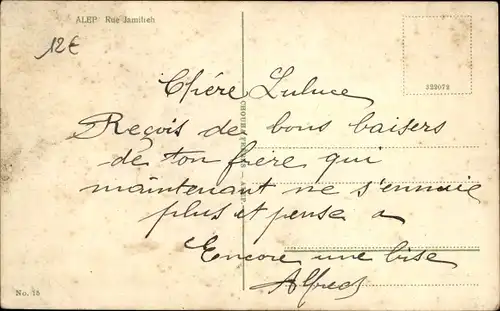 ALEP Rue Jamilieh
12€
322072
Chère Luluce
Reçois de bons baisers
de ton frère qui
maintenant ne s'ennuie
plus et pense a
Encore une bise
Alfred
No. 16